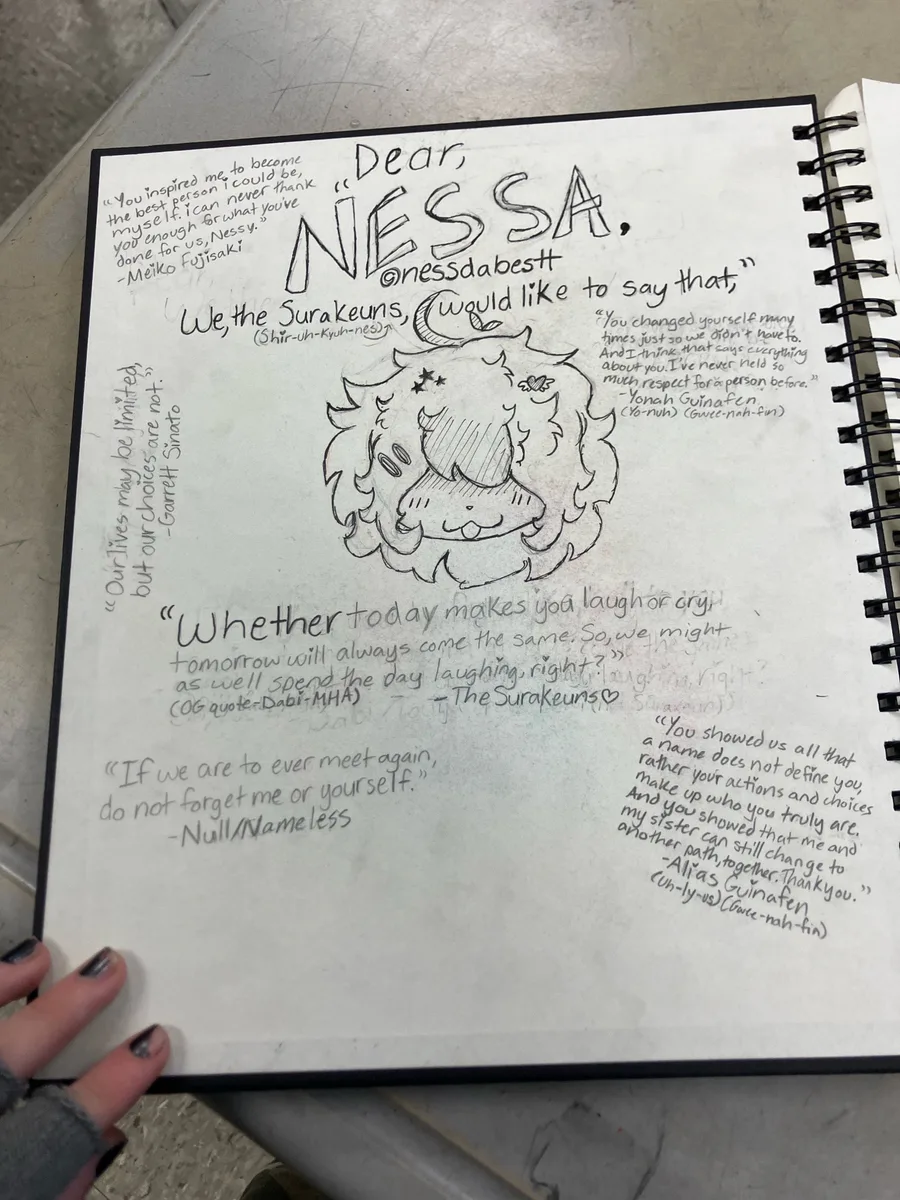 "Dear,
NESSA.
@nessdabestt
"You inspired me, to become
the best person i could be,
myself. i can never thank
you enough for what you've
done for us, Nessy."
-Meiko Fujisaki
We, the Surakeuns, would like to say that,"
(Shir-uh-kyuh-nes)
"You changed yourself many
times just so we didn't have to.
And I think that says everything
about you. I've never held so
much respect for a person before."
-Yonah Guinafen
(Yo-nuh) (Gwee-nah-fin)
"Our lives may be limited,
but our choices are not."
-Garrett Sinato
"Whether today makes you laugh or cry,
tomorrow will always come the same. So, we might
as we'll spend the day laughing, right?"
(OG quote-Dabi-MHA) -The Surakeuns♡
"If we are to ever meet again,
do not forget me or yourself."
-Null/Nameless
"You showed us all that
a name does not define you,
rather your actions and choices
make up who you truly are.
And you showed that me and
my sister can still change to
another path, together. Thank you."
-Alias Guinafen
(uh-ly-us) (Gwee-nah-fin)